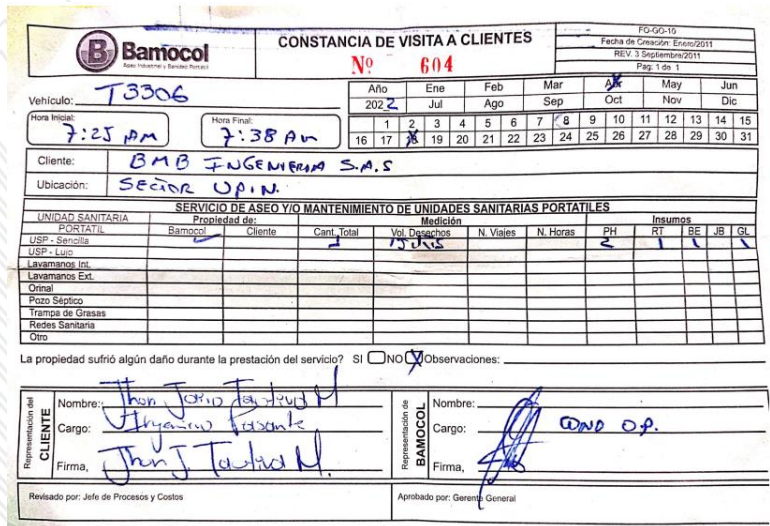 Bamocol
Aseo Industrial y Baños Portátil
CONSTANCIA DE VISITA A CLIENTES
Nº 604
FO-GO-10
Fecha de Creación: Enero/2011
REV. 3 Septiembre/2011
Pag: 1 de 1
Vehículo: T3306
Año Ene Feb Mar Abr May Jun
2022 Jul Ago Sep Oct Nov Dic
Hora Inicial: 7:25 AM
Hora Final: 7:38 AM
1 2 3 4 5 6 7 8 9 10 11 12 13 14 15
16 17 18 19 20 21 22 23 24 25 26 27 28 29 30 31
Cliente: BMB INGENIERIA S.A.S
Ubicación: SECTOR U.P.I.N.
SERVICIO DE ASEO Y/O MANTENIMIENTO DE UNIDADES SANITARIAS PORTATILES
UNIDAD SANITARIA PORTATIL Propiedad de: Medición Insumos
Bamocol Cliente Cant. Total Vol. Desechos N. Viajes N. Horas PH RT BE JB GL
USP - Sencilla 1 2 1 1 1
USP - Lujo
Lavamanos Int.
Lavamanos Ext.
Orinal
Pozo Séptico
Trampa de Grasas
Redes Sanitaria
Otro
La propiedad sufrió algún daño durante la prestación del servicio? SI NO X Observaciones:
Representación del CLIENTE
Nombre: Jhon
Cargo:
Firma, Jhon J.
Representación de BAMOCOL
Nombre:
Cargo: COND O.P.
Firma,
Revisado por: Jefe de Procesos y Costos
Aprobado por: Gerente General